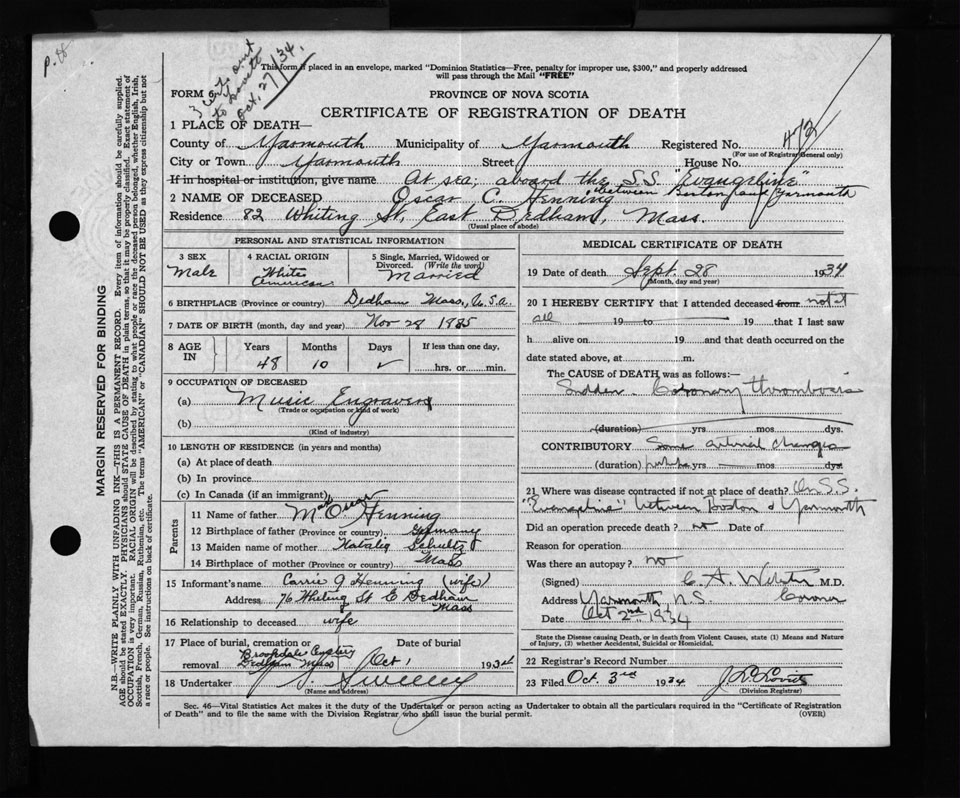 3 certs sent
Oct. 27/34.
This form if placed in an envelope, marked "Dominion Statistics—Free, penalty for improper use, $300," and properly addressed
will pass through the Mail "FREE"
FORM 6
PROVINCE OF NOVA SCOTIA
CERTIFICATE OF REGISTRATION OF DEATH
1 PLACE OF DEATH—
County of Yarmouth Municipality of Yarmouth Registered No. 472
(For use of Registrar General only)
City or Town Yarmouth Street House No.
If in hospital or institution, give name At sea, aboard the S.S. "Evangeline"
between Boston and Yarmouth
2 NAME OF DECEASED Oscar C. Henning
Residence 82 Whiting St, East Dedham, Mass.
(Usual place of abode)
PERSONAL AND STATISTICAL INFORMATION
3 SEX Male
4 RACIAL ORIGIN White American
5 Single, Married, Widowed or Divorced. (Write the word) Married
6 BIRTHPLACE (Province or country) Dedham Mass, U.S.a.
7 DATE OF BIRTH (month, day and year) Nov 28 1885
8 AGE IN Years Months Days If less than one day,
48 10 ✓ hrs. or min.
9 OCCUPATION OF DECEASED
(a) Music Engraver
(Trade or occupation or kind of work)
(b)
(Kind of industry)
10 LENGTH OF RESIDENCE (in years and months)
(a) At place of death
(b) In province
(c) In Canada (if an immigrant)
Parents
11 Name of father Oscar Henning
12 Birthplace of father (Province or country) Germany
13 Maiden name of mother Natalia Schultz
14 Birthplace of mother (Province or country) Mass
15 Informant's name Carrie J Henning (wife)
Address 76 Whiting St E Dedham Mass
16 Relationship to deceased wife
17 Place of burial, cremation or removal Date of burial
Brookdale Cemetery Dedham Mass Oct 1 1934
18 Undertaker J. Sweeney
(Name and address)
MEDICAL CERTIFICATE OF DEATH
19 Date of death Sept. 28 1934
(Month, day and year)
20 I HEREBY CERTIFY that I attended deceased from not at
all 19 to 19 that I last saw
h alive on 19 and that death occurred on the
date stated above, at m.
The CAUSE of DEATH was as follows:—
Sudden. Coronary thrombosis
(duration) yrs mos dys.
CONTRIBUTORY Some arterial changes
(duration) yrs mos dys
21 Where was disease contracted if not at place of death? On S.S.
"Evangeline" between Boston & Yarmouth
Did an operation precede death? no Date of
Reason for operation
Was there an autopsy? no
(Signed) C. A. Webster M.D.
Address Yarmouth N.S. Coroner
Date Oct 2nd 1934
State the Disease causing Death, or in death from Violent Causes, state (1) Means and Nature
of Injury, (2) whether Accidental, Suicidal or Homicidal.
22 Registrar's Record Number
23 Filed Oct. 3rd 1934
(Division Registrar)
Sec. 46—Vital Statistics Act makes it the duty of the Undertaker or person acting as Undertaker to obtain all the particulars required in the "Certificate of Registration
of Death" and to file the same with the Division Registrar who shall issue the burial permit. (OVER)
MARGIN RESERVED FOR BINDING
N.B.—WRITE PLAINLY WITH UNFADING INK—THIS IS A PERMANENT RECORD. Every item of information should be carefully supplied.
AGE should be stated EXACTLY. PHYSICIANS should STATE CAUSE OF DEATH in plain terms, so that it may be properly classified. Exact statement of
OCCUPATION is very important. RACIAL ORIGIN will be described by stating to what people or race the deceased person belonged, whether English, Irish,
Scottish, French, German, Russian, Ruthenian, etc. The terms "AMERICAN" or "CANADIAN" SHOULD NOT BE USED as they express citizenship but not
a race or people. See instructions on back of certificate.